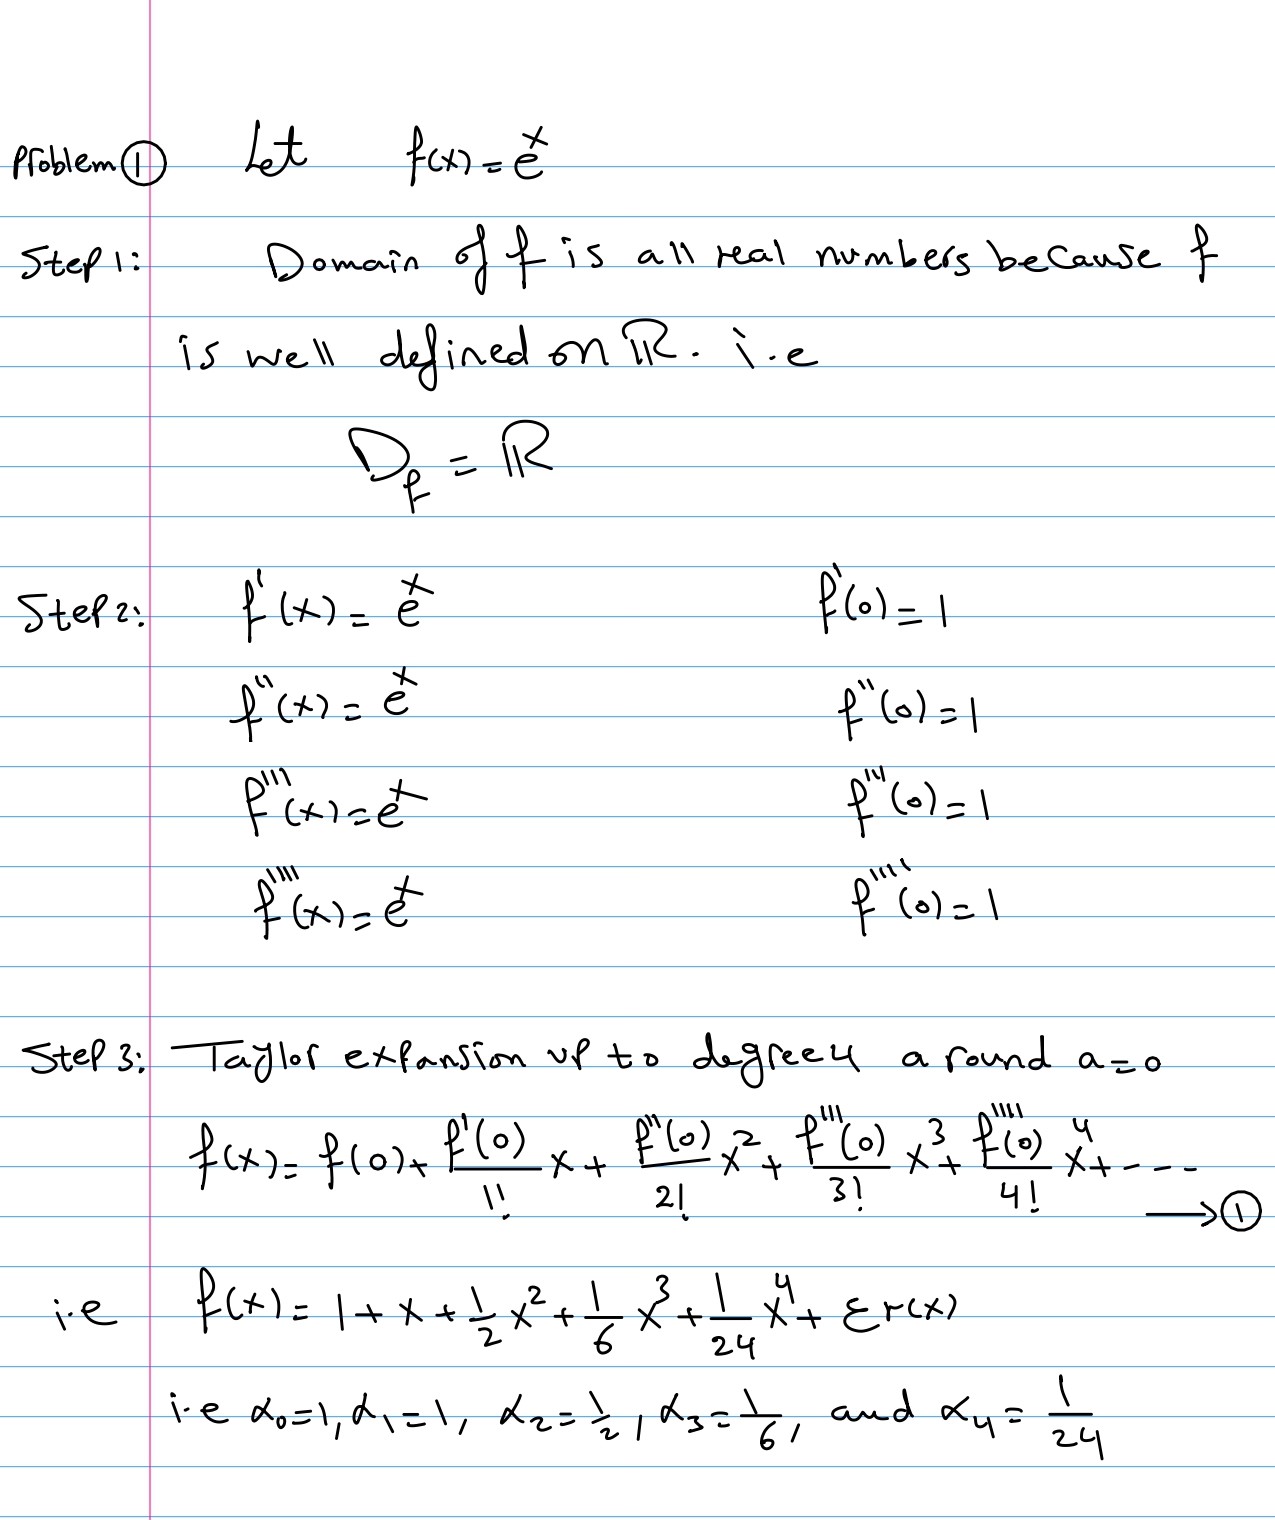 Problem ① Let f(x) = e^x
Step 1: Domain of f is all real numbers because f
is well defined on ℝ. i.e
D_f = ℝ
Step 2: f'(x) = e^x f'(0) = 1
f''(x) = e^x f''(0) = 1
f'''(x) = e^x f'''(0) = 1
f''''(x) = e^x f''''(0) = 1
Step 3: Taylor expansion up to degree 4 around a = 0
f(x) = f(0) + f'(0)/1! x + f''(0)/2! x^2 + f'''(0)/3! x^3 + f''''(0)/4! x^4 + ---
→ ①
i.e f(x) = 1 + x + 1/2 x^2 + 1/6 x^3 + 1/24 x^4 + Er(x)
i.e α_0 = 1, α_1 = 1, α_2 = 1/2, α_3 = 1/6, and α_4 = 1/24